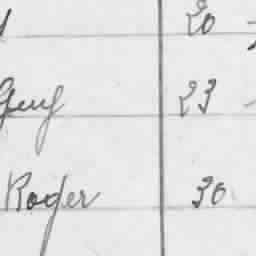 20
Guy 23
Roger 30